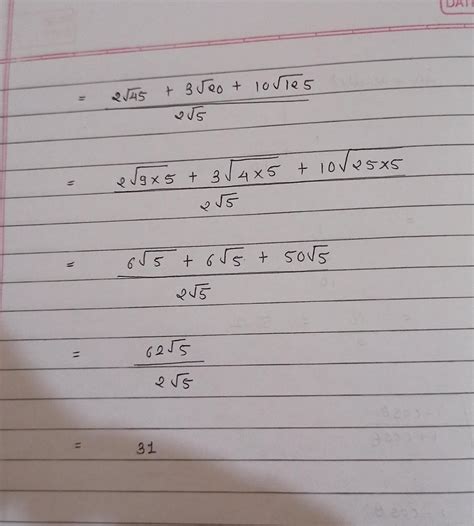 DATE
= (2√45 + 3√20 + 10√125) / 2√5
= (2√9×5 + 3√4×5 + 10√25×5) / 2√5
= (6√5 + 6√5 + 50√5) / 2√5
= 62√5 / 2√5
= 31